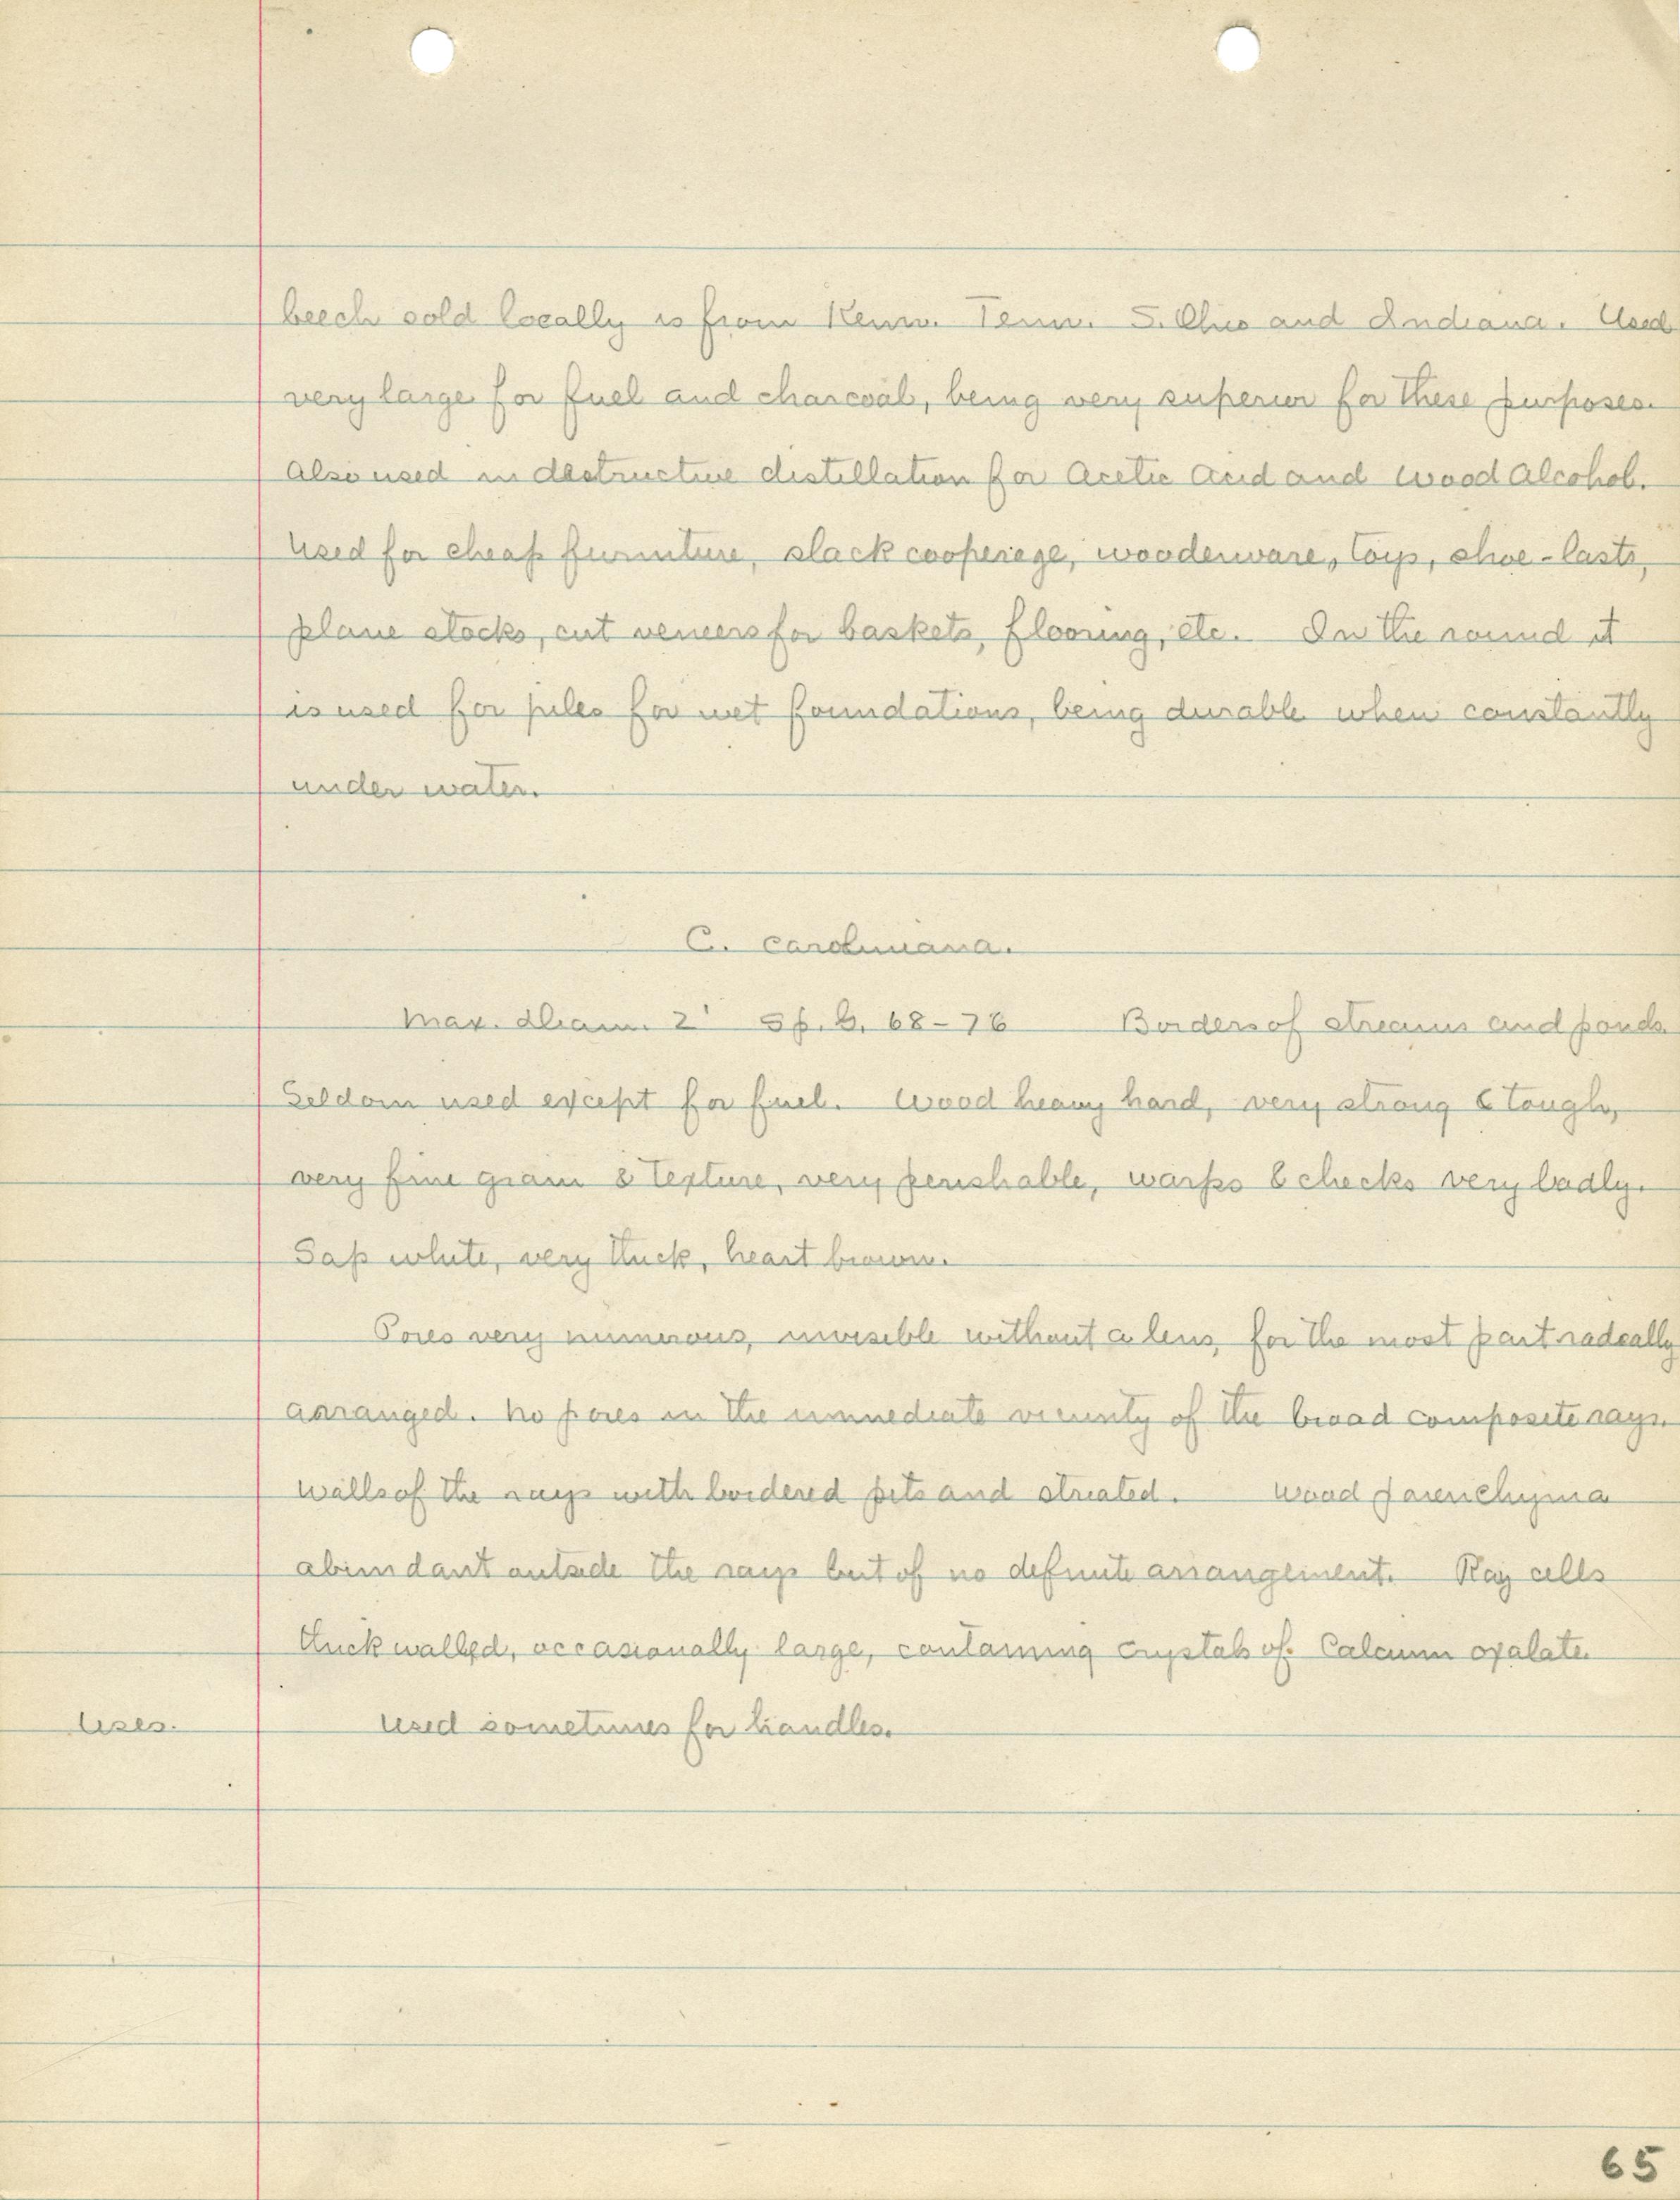 beech sold locally is from Kenn. Tenn. S. Ohio and Indiana. Used
very large for fuel and charcoal, being very superior for these purposes.
Also used in destructive distillation for Acetic Acid and Wood Alcohol.
Used for cheap furniture, slack cooperege, woodenware, toys, shoe-lasts,
plane stocks, cut veneers for baskets, flooring, etc. In the round it
is used for piles for wet foundations, being durable when constantly
under water.
C. caroliniana.
Max. diam. 2' Sp. G. 68-76 Borders of streams and ponds.
Seldom used except for fuel. Wood heavy hard, very strong & tough,
very fine grain & texture, very perishable, warps & checks very badly.
Sap white, very thick, heart brown.
Pores very numerous, invisible without a lens, for the most part radially
arranged. No pores in the immediate vicinity of the broad composite rays.
Walls of the rays with bordered pits and striated. Wood parenchyma
abundant outside the rays but of no definite arrangement. Ray cells
thick walled, occasionally large, containing crystals of Calcium oxalate.
Uses. Used sometimes for handles.
65